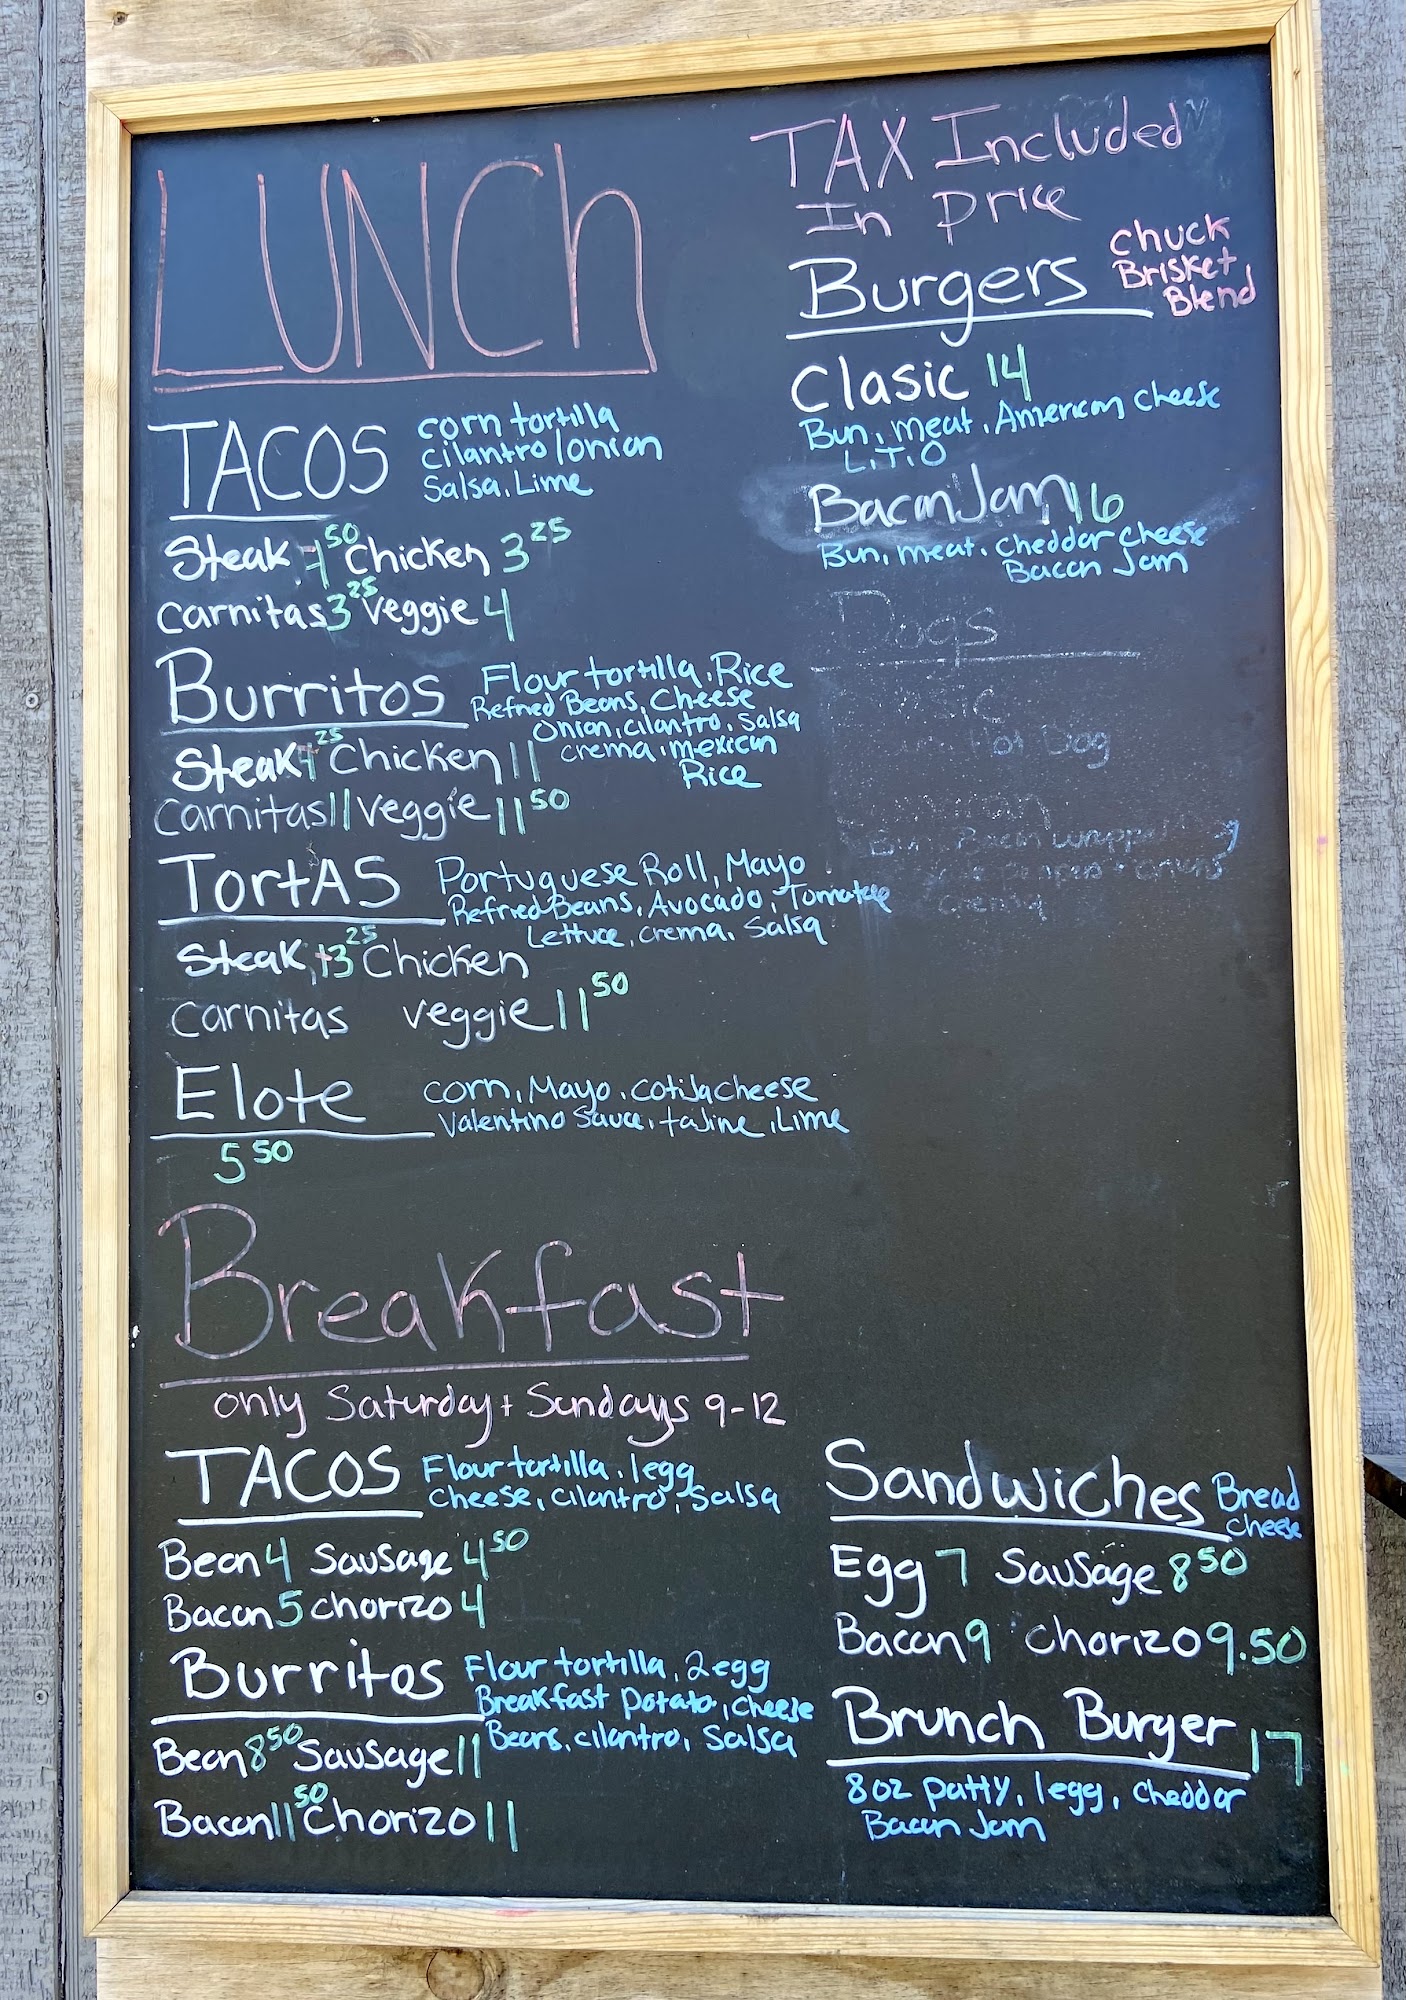 LUNCh
TACOS
corn tortilla
cilantro/onion
Salsa, Lime
Steak 50 Chicken 3 25
Carnitas 3 25 Veggie 4
Burritos
Flour tortilla, Rice
Refried Beans, Cheese
Onion, cilantro, Salsa
crema, mexican
Rice
Steak 25 Chicken 11
Carnitas 11 Veggie 11 50
TortAS
Portuguese Roll, Mayo
Refried Beans, Avocado, Tomatoe
Lettuce, crema, Salsa
Steak, +3 25 Chicken
Carnitas veggie 11 50
Elote
corn, Mayo, cotija cheese
Valentino Sauce, tajine, Lime
5 50
TAX Included
In price
Burgers
chuck
Brisket
Blend
Clasic 14
Bun, meat, American cheese
L, T, O
Bacon Jam 16
Bun, meat, cheddar cheese
Bacon Jam
Dogs
Hot Dog
Breakfast
only Saturday + Sundays 9-12
TACOS
Flour tortilla, 1 egg
Cheese, cilantro, Salsa
Bean 4 Sausage 4 50
Bacon 5 chorizo 4
Burritos
Flour tortilla, 2 egg
Breakfast potato, cheese
Beans, cilantro, Salsa
Bean 8 50 Sausage 11
Bacon 11 50 Chorizo 11
Sandwiches
Bread
cheese
Egg 7 Sausage 8 50
Bacon 9 chorizo 9.50
Brunch Burger 17
8oz patty, 1 egg, cheddar
Bacon Jam